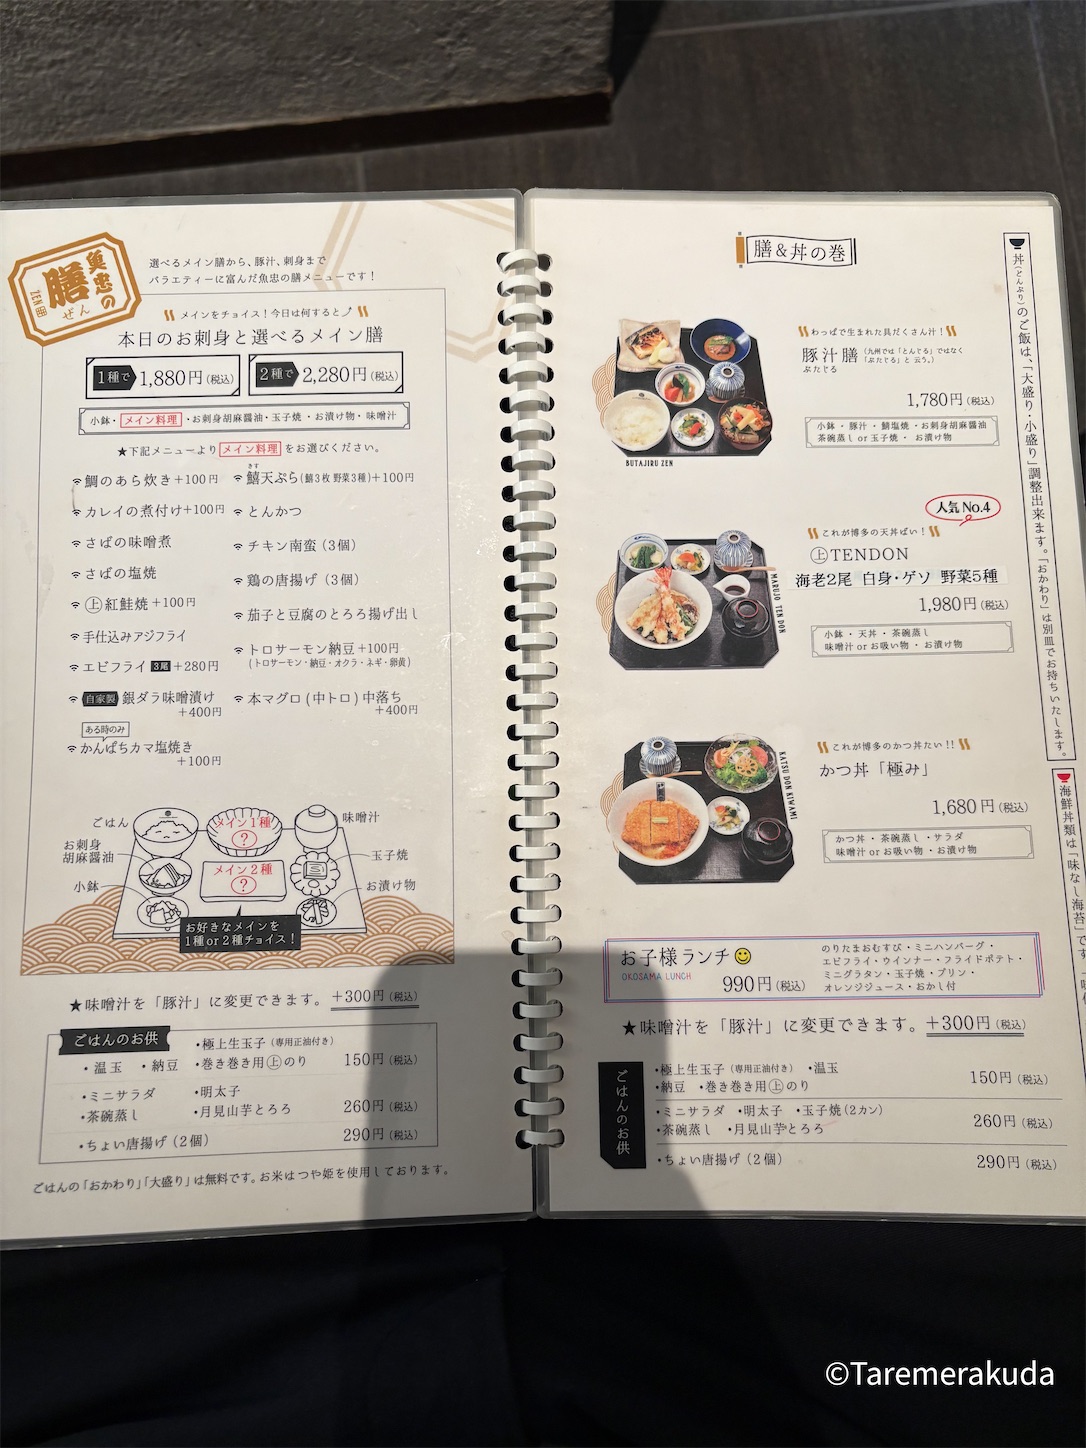 魚忠の
膳
ZEN
ぜん
選べるメイン膳から、豚汁、刺身まで
バラエティーに富んだ魚忠の膳メニューです！
メインをチョイス！今日は何すると
本日のお刺身と選べるメイン膳
1種で 1,880円(税込)
2種で 2,280円(税込)
小鉢・メイン料理・お刺身胡麻醤油・玉子焼・お漬け物・味噌汁
★下記メニューよりメイン料理をお選びください。
鯛のあら炊き+100円
カレイの煮付け+100円
さばの味噌煮
さばの塩焼
上紅鮭焼+100円
手仕込みアジフライ
エビフライ 3尾 +280円
自家製 銀ダラ味噌漬け
+400円
ある時のみ
かんぱちカマ塩焼き
+100円
きす
鱚天ぷら(鱚3枚 野菜3種)+100円
とんかつ
チキン南蛮（3個）
鶏の唐揚げ（3個）
茄子と豆腐のとろろ揚げ出し
トロサーモン納豆+100円
(トロサーモン・納豆・オクラ・ネギ・卵黄)
本マグロ(中トロ)中落ち
+400円
ごはん
お刺身
胡麻醤油
小鉢
メイン1種
?
メイン2種
?
味噌汁
玉子焼
お漬け物
お好きなメインを
1種or2種チョイス！
★味噌汁を「豚汁」に変更できます。+300円(税込)
ごはんのお供
・極上生玉子(専用正油付き)
・温玉 ・納豆 ・巻き巻き用上のり 150円(税込)
・ミニサラダ ・明太子
・茶碗蒸し ・月見山芋とろろ 260円(税込)
・ちょい唐揚げ（2個） 290円(税込)
ごはんの「おかわり」「大盛り」は無料です。お米はつや姫を使用しております。
膳&丼の巻
わっぱで生まれた具だくさん汁！
豚汁膳
ぶたじる
(九州では「とんじる」ではなく
「ぶたじる」と云う。)
1,780円(税込)
小鉢・豚汁・鯖塩焼・お刺身胡麻醤油
茶碗蒸しor玉子焼・お漬け物
BUTAJIRU ZEN
人気No.4
これが博多の天丼ばい！
上TENDON
海老2尾 白身・ゲソ 野菜5種
1,980円(税込)
小鉢・天丼・茶碗蒸し
味噌汁 or お吸い物・お漬け物
MARUJO TEN DON
これが博多のかつ丼たい!!
かつ丼「極み」
1,680円(税込)
かつ丼・茶碗蒸し・サラダ
味噌汁 or お吸い物・お漬け物
KATSU DON KIWAMI
お子様ランチ
OKOSAMA LUNCH
990円(税込)
のりたまおむすび・ミニハンバーグ・
エビフライ・ウインナー・フライドポテト・
ミニグラタン・玉子焼・プリン・
オレンジジュース・おかし付
★味噌汁を「豚汁」に変更できます。+300円(税込)
ごはんのお供
・極上生玉子(専用正油付き) ・温玉
・納豆 ・巻き巻き用上のり 150円(税込)
・ミニサラダ ・明太子 ・玉子焼(2カン)
・茶碗蒸し ・月見山芋とろろ 260円(税込)
・ちょい唐揚げ（2個） 290円(税込)
丼(どんぶり)のご飯は、「大盛り・小盛り」調整出来ます。「おかわり」は別皿でお持ちいたします。
海鮮丼類は「味なし海苔」です。
©Taremerakuda